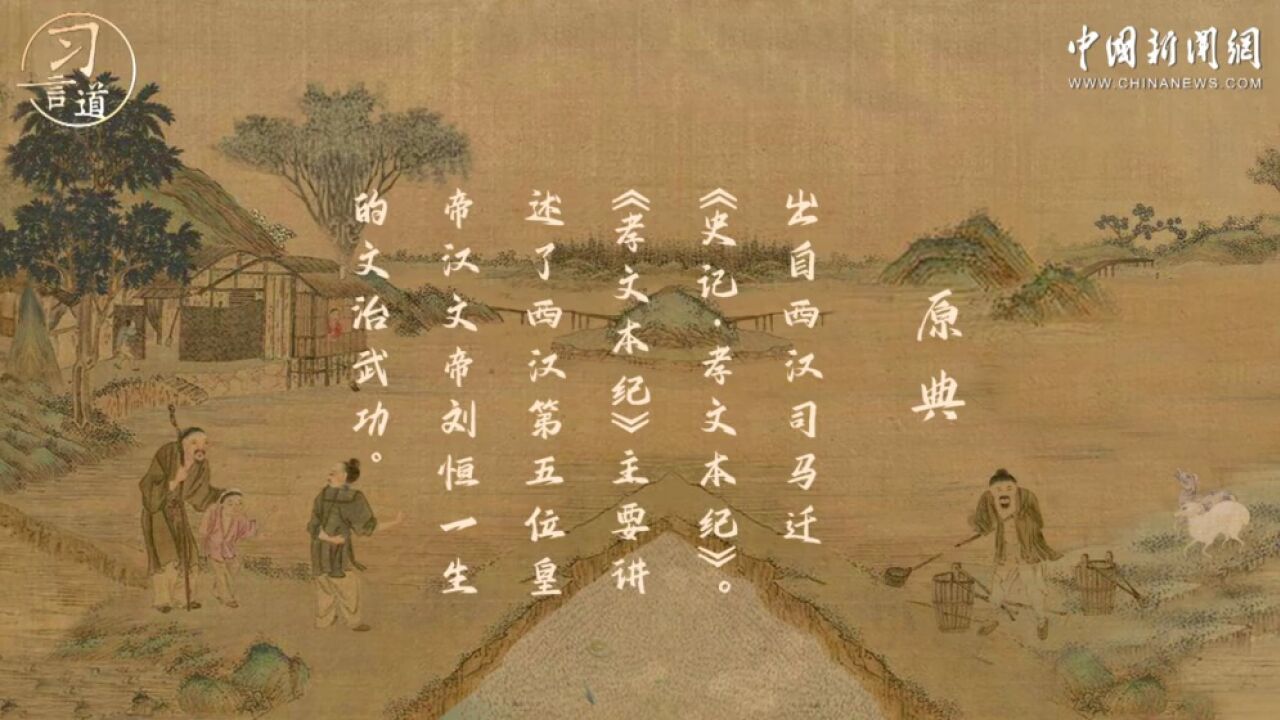 习
言道
中國新聞網
WWW.CHINANEWS.COM
原典
出自西汉司马迁
《史记·孝文本纪》。
《孝文本纪》主要讲
述了西汉第五位皇
帝汉文帝刘恒一生
的文治武功。